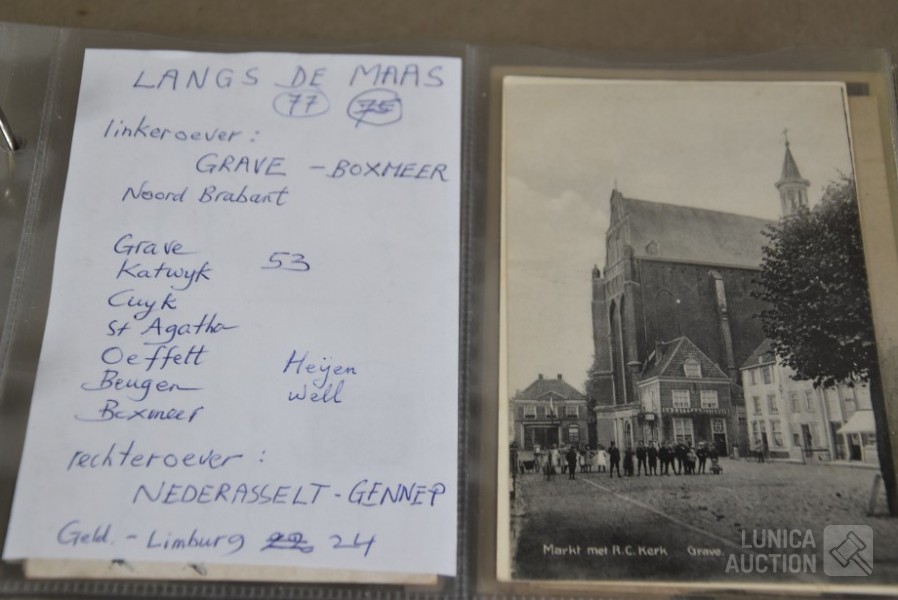 LANGS DE MAAS
77 75
linkeroever :
GRAVE - BOXMEER
Noord Brabant
Grave 53
Katwyk
Cuyk
St Agatha
Oeffelt Heijen
Beugen Well
Boxmeer
rechteroever :
NEDERASSELT - GENNEP
Geld. - Limburg 22 24
Markt met R.C. Kerk Grave.
LUNICA
AUCTION